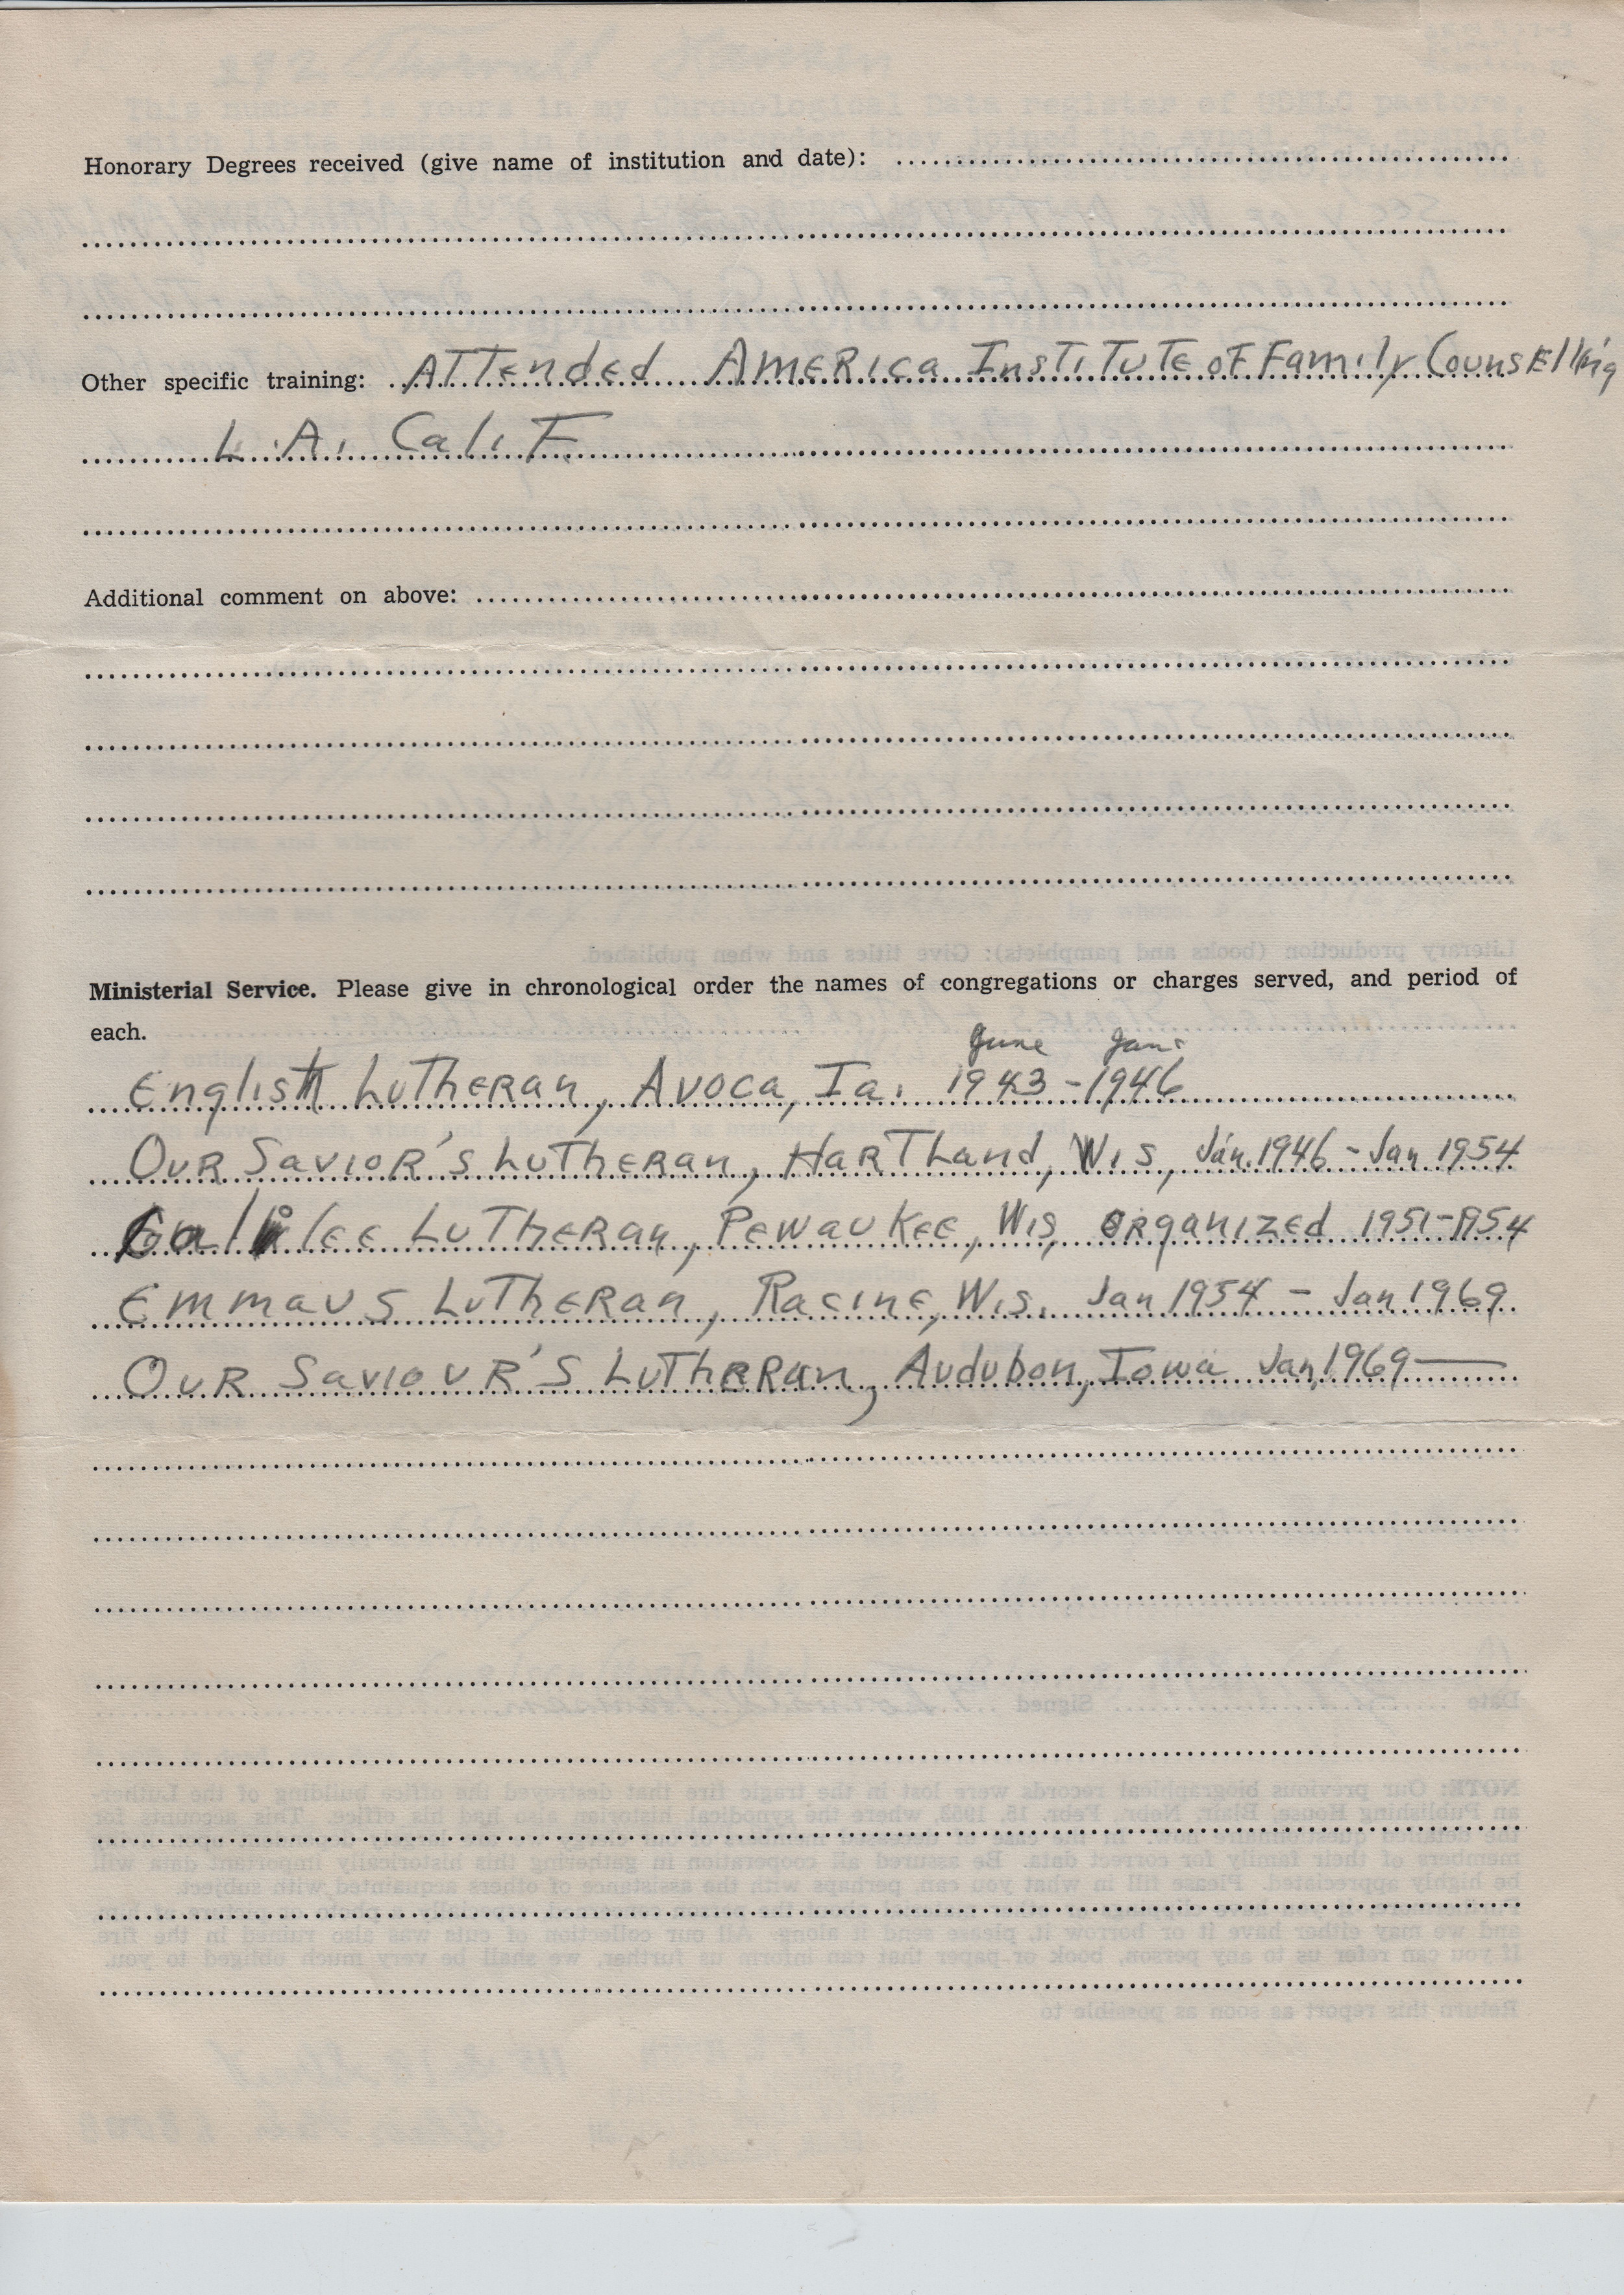 Honorary Degrees received (give name of institution and date):
Other specific training: Attended America Institute of Family Counselling
L.A. Calif.
Additional comment on above:
Ministerial Service. Please give in chronological order the names of congregations or charges served, and period of
each.
June Jan.
English Lutheran, Avoca, Ia. 1943-1946
Our Savior's Lutheran, Hartland, Wis, Jan. 1946 - Jan 1954
Galilee Lutheran, Pewaukee, Wis, organized 1951-1954
Emmaus Lutheran, Racine, Wis. Jan 1954 - Jan 1969
Our Saviour's Lutheran, Audubon, Iowa Jan, 1969—